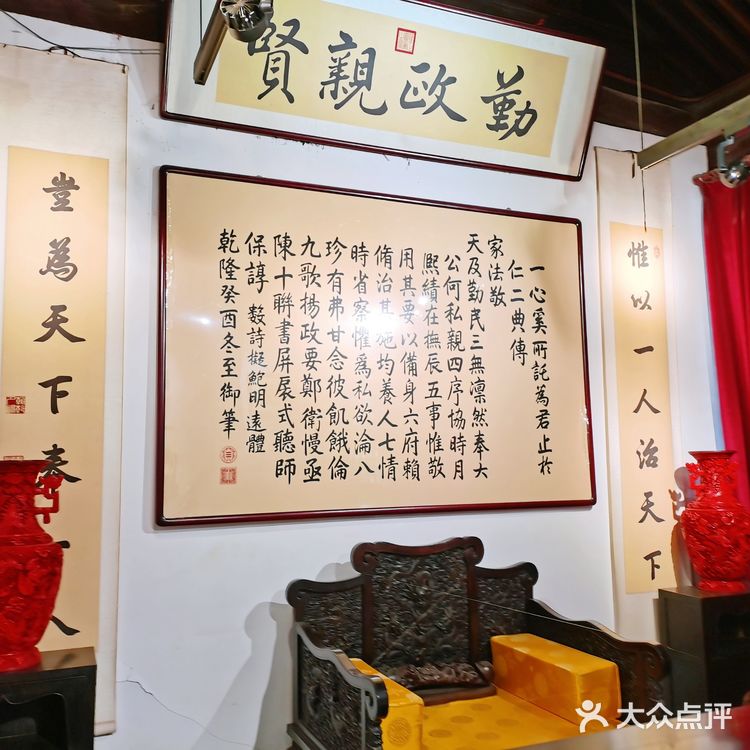 勤政親賢
惟以一人治天下
一心奚所託為君止於
仁二典傳
家法敬
天及勤民三無凛然奉大
公何私親四序協時月
熙績在撫辰五事惟敬
用其要以備身六府賴
脩治其施均養人七情
時省察惟為私欲淪八
珍有弗甘念彼飢餓倫
九歌揚政要鄭衛慢亟
陳十聯書屏扆式聽師
保諄 數詩擬鮑明遠體
乾隆癸酉冬至御筆
豈為天下奉一人
大众点评